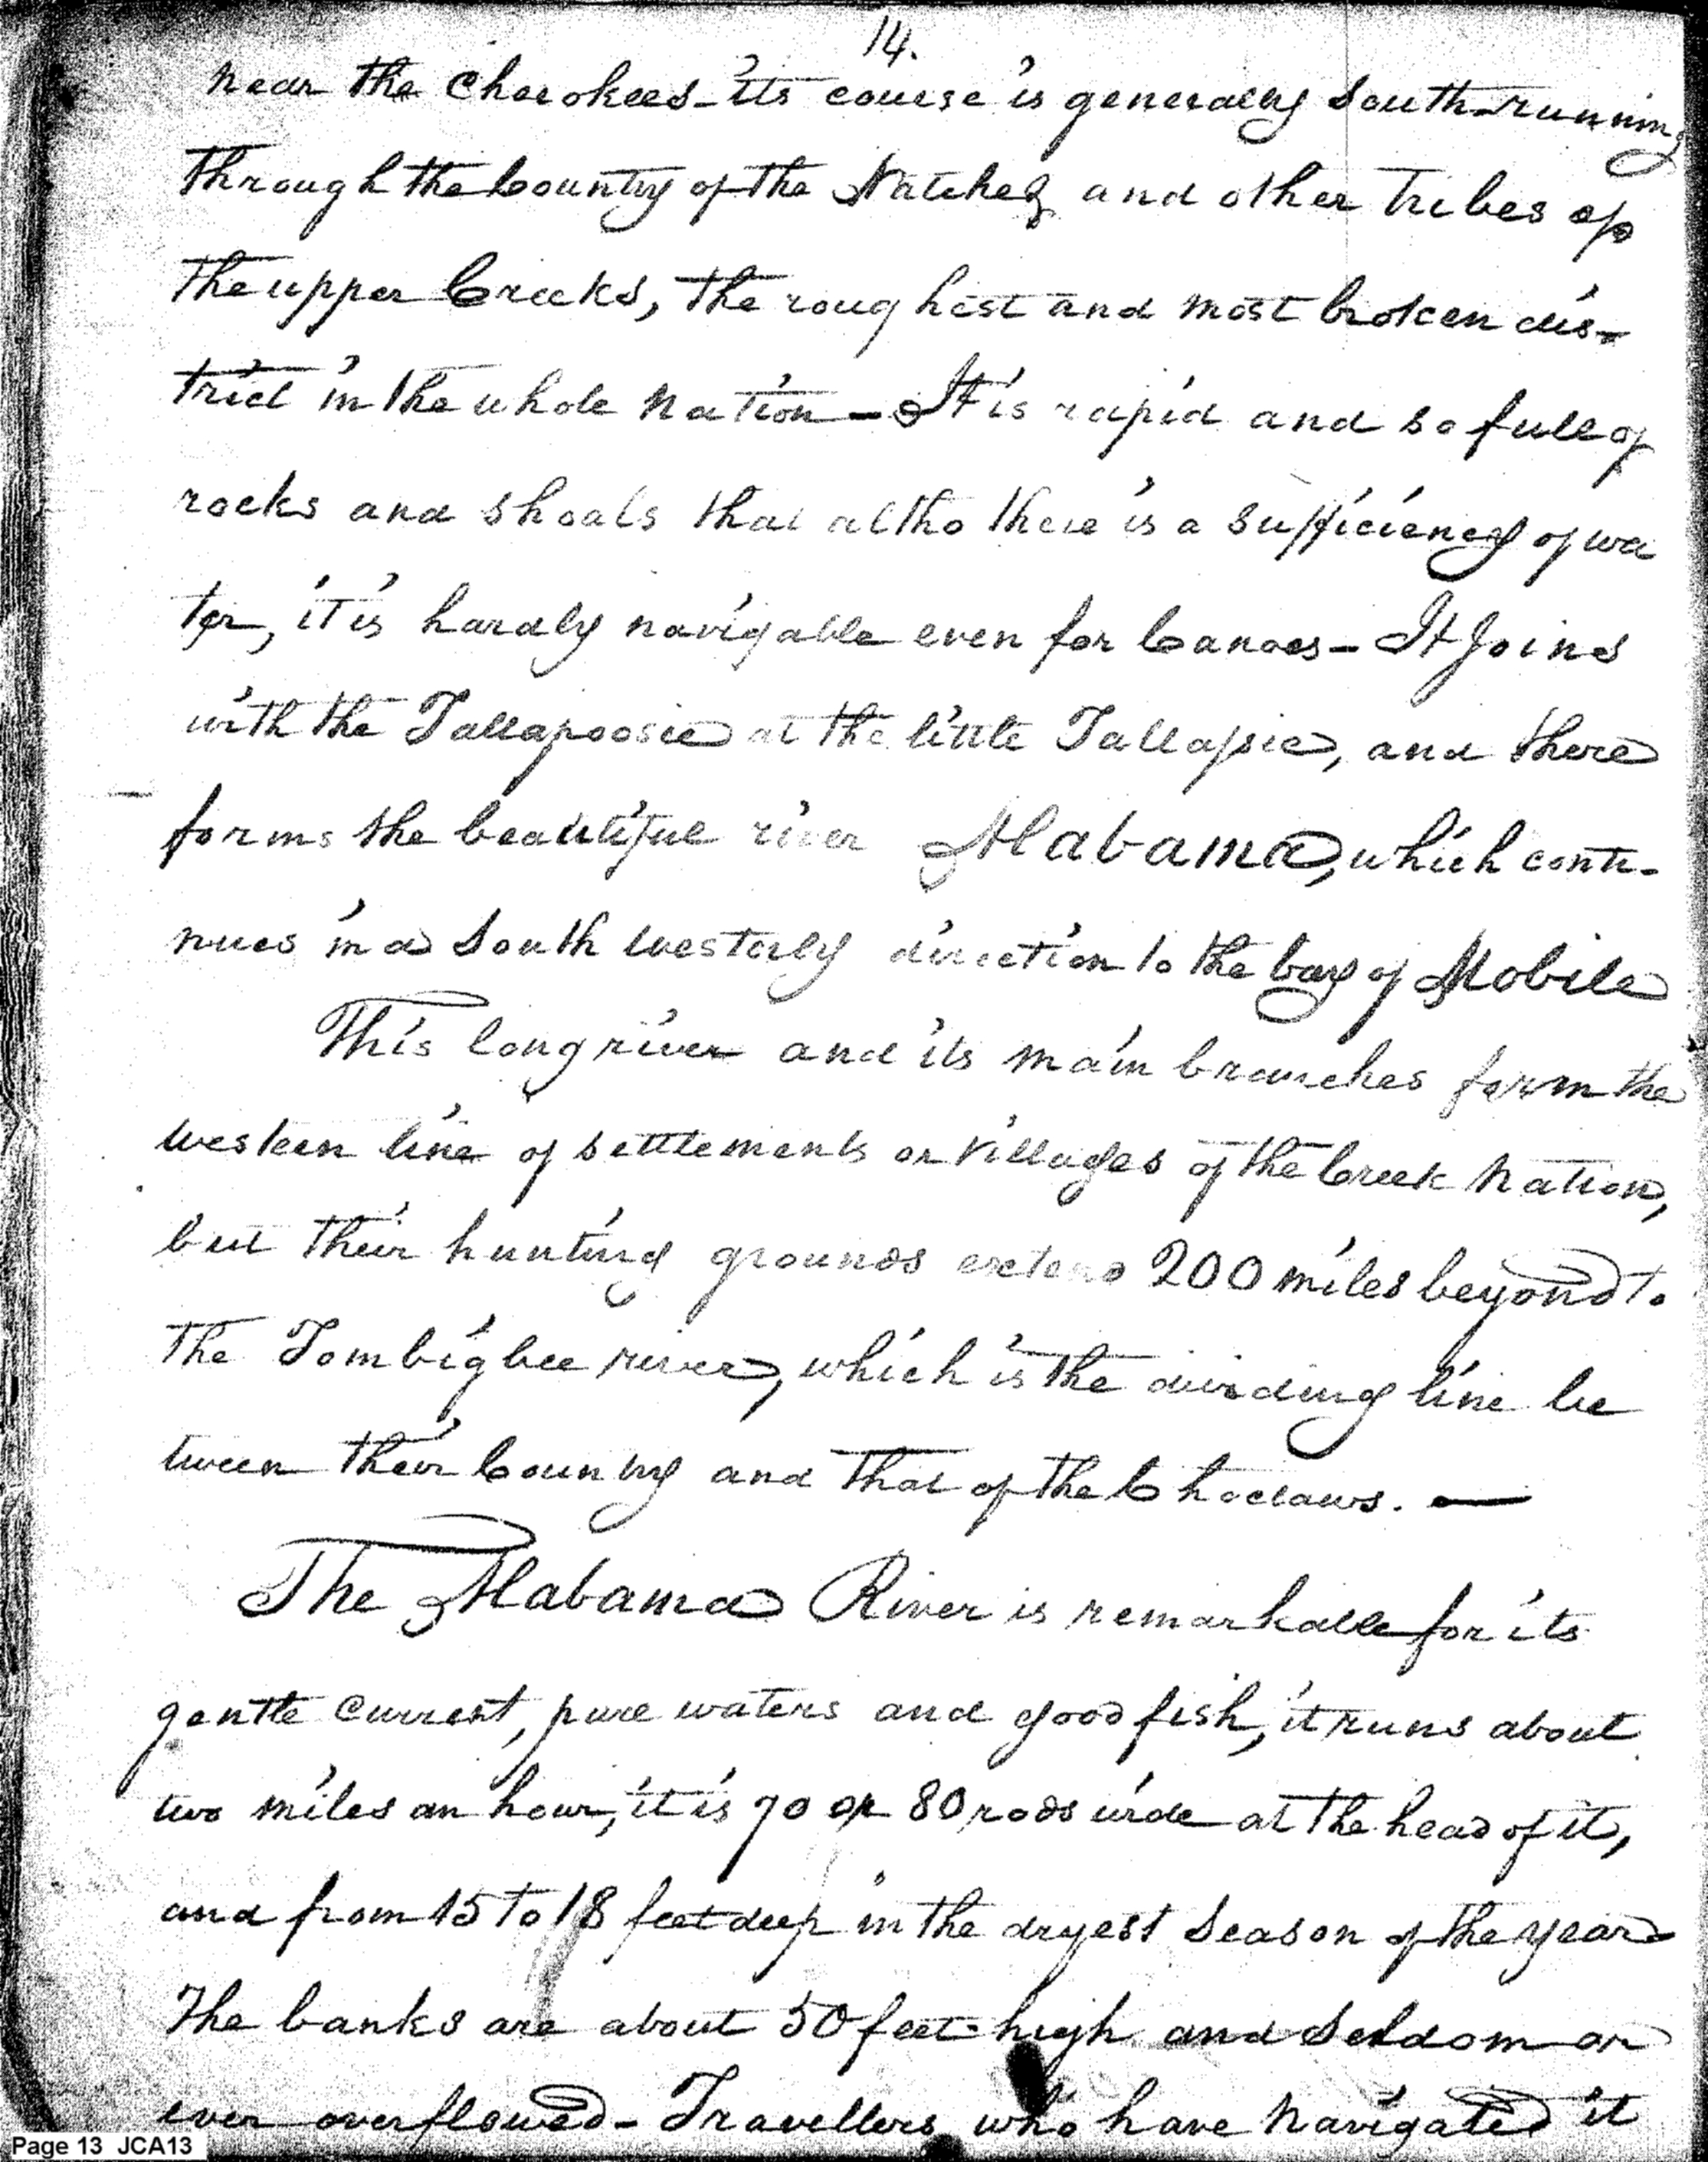 14.
near the Cherokees - its course is generally South - running
through the Country of the Natchez and other tribes of
the upper Creeks, the roughest and most broken dis-
trict in the whole Nation - It is rapid and so full of
rocks and shoals that altho there is a sufficiency of wa
ter, it is hardly navigable even for Canoes - It Joins
with the Tallapoosie at the little Tallasie, and there
forms the beautiful river Alabama, which conti-
nues in a South Westerly direction to the bay of Mobile
This long river and its main branches form the
western line of settlements or Villages of the Creek Nation,
but their hunting grounds extend 200 miles beyond to
the Tombigbee river, which is the dividing line be
tween their Country and that of the Choctaws. —
The Alabama River is remarkable for its
gentle current, pure waters and good fish, it runs about
two miles an hour, it is 70 or 80 rods wide at the head of it,
and from 15 to 18 feet deep in the dryest Season of the year
The banks are about 50 feet high and Seldom or
ever overflowed - Travellers who have navigated it
Page 13 JCA13